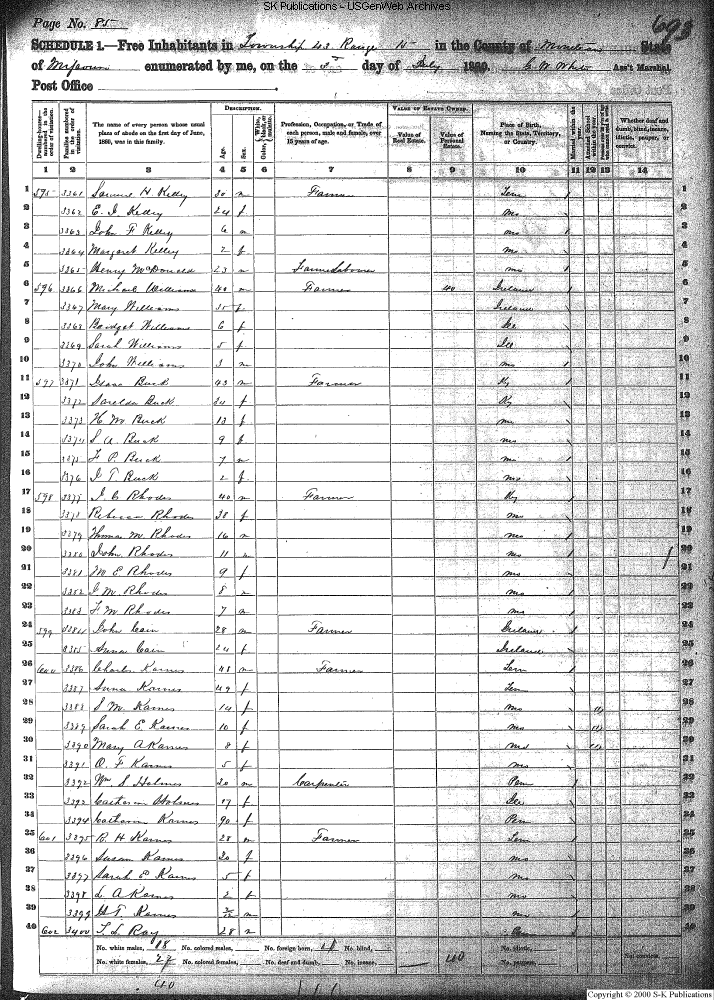 SK Publications - USGenWeb Archives
Page No. 85
693
SCHEDULE 1.—Free Inhabitants in Township 43 Range 15 in the County of State
of Missouri enumerated by me, on the day of July 1860. Ass't Marshal.
Post Office
DESCRIPTION. VALUE OF ESTATE OWNED.
Dwelling-houses—numbered in the order of visitation.
Families numbered in the order of visitation.
The name of every person whose usual place of abode on the first day of June, 1860, was in this family.
Age.
Sex.
Color, White, black, or mulatto.
Profession, Occupation, or Trade of each person, male and female, over 15 years of age.
Value of Real Estate.
Value of Personal Estate.
Place of Birth, Naming the State, Territory, or Country.
Married within the year.
Whether deaf and dumb, blind, insane, idiotic, pauper, or convict.
1 2 3 4 5 6 7 8 9 10 11 12 13 14
1 595 3361 Samuel H Kelly 30 m Farmer Tenn 1
2 3362 E. J. Kelly 24 f Mo 2
3 3363 John F Kelly 6 m Mo 3
4 3364 Margaret Kelly 2 f Mo 4
5 3365 Henry McDonald 23 m Farm laborer Mo 5
6 596 3366 Michael Williams 40 m Farmer 40 Ireland 6
7 3367 Mary Williams 35 f Ireland 7
8 3368 Bridget Williams 6 f Ill 8
9 3369 Sarah Williams 5 f Ill 9
10 3370 John Williams 3 m Mo 10
11 597 3371 Isaac Buck 43 m Farmer Ky 11
12 3372 Buck 34 f Ky 12
13 3373 H M Buck 13 f Mo 13
14 3374 S A Buck 9 f Mo 14
15 3375 F P. Buck 7 m Mo 15
16 3376 J T. Buck 2 f Mo 16
17 598 J. C Rhodes 40 m Farmer Ky 17
18 Rebecca Rhodes 38 f Mo 18
19 3379 Thomas M. Rhodes 16 m Mo 19
20 3380 John Rhodes 11 Mo 20
21 3381 M E. Rhodes 9 f Mo 21
22 3382 J M. Rhodes 8 Mo 22
23 3383 F M Rhodes 7 m Mo 23
24 599 3384 John Cain 28 m Farmer Ireland 24
25 3385 Cain 24 f Ireland 25
26 600 3386 Charles Karnes 48 m Farmer Tenn 26
27 3387 Karnes 49 f Tenn 27
28 3388 S M. Karnes 14 f Mo 28
29 3389 Sarah E Karnes 10 f Mo 29
30 3390 Mary A Karnes 8 f Mo 30
31 3391 O. F Karnes 5 f Mo 31
32 3392 Wm S Holmes 30 m Carpenter Pen 32
33 Holmes 17 f Ill 33
34 3394 Karnes 90 f Pen 34
35 601 3395 R. H Karnes 28 m Farmer Tenn 35
36 3396 Susan Karnes 20 f Mo 36
37 3397 Sarah E Karnes 5 f Mo 37
38 3398 L A Karnes 2 f Mo 38
39 3399 Karnes m Mo 39
40 602 3400 T. L Ray 28 40
No. white males, 18 No. colored males, No. foreign born, No. blind, No. idiotic,
No. white females, 22 No. colored females, No. deaf and dumb, No. insane, 40 No. paupers, No. convicts,
40
Copyright © 2000 S-K Publications